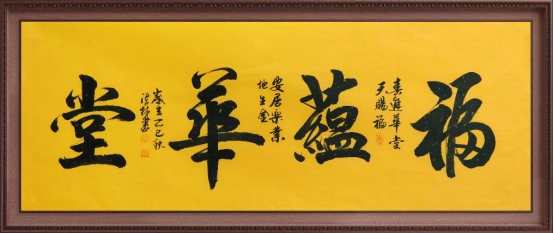 福蘊華堂
春進華堂
天賜福
安居樂業
地生金
歲在乙巳秋